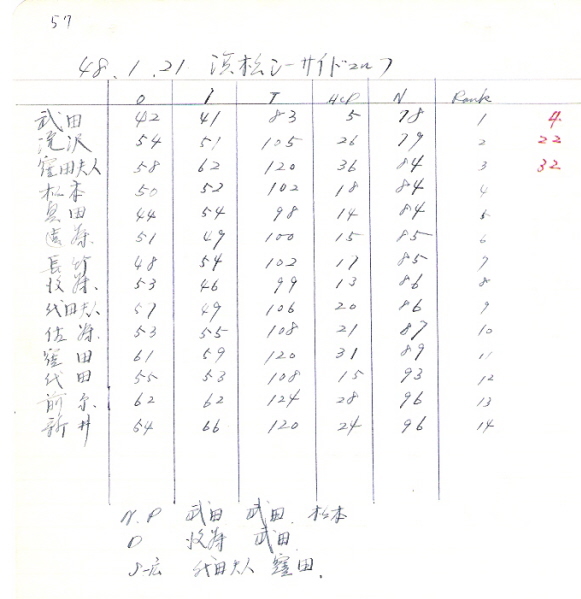 57
48.1.21 浜松シーサイドゴルフ
O I T HCP N Rank
武田 42 41 83 5 78 1 4
滝沢 54 51 105 26 79 2 22
窪田夫人 58 62 120 36 84 3 32
松本 50 52 102 18 84 4
44 54 98 14 84 5
51 49 100 15 85 6
長竹 48 54 102 17 85 7
53 46 99 13 86 8
代田夫人 57 49 106 20 86 9
佐藤 53 55 108 21 87 10
窪田 61 59 120 31 89 11
代田 55 53 108 15 93 12
62 62 124 28 96 13
新井 54 66 120 24 96 14
N.P 武田 武田 松本
D 武田
代田夫人 窪田